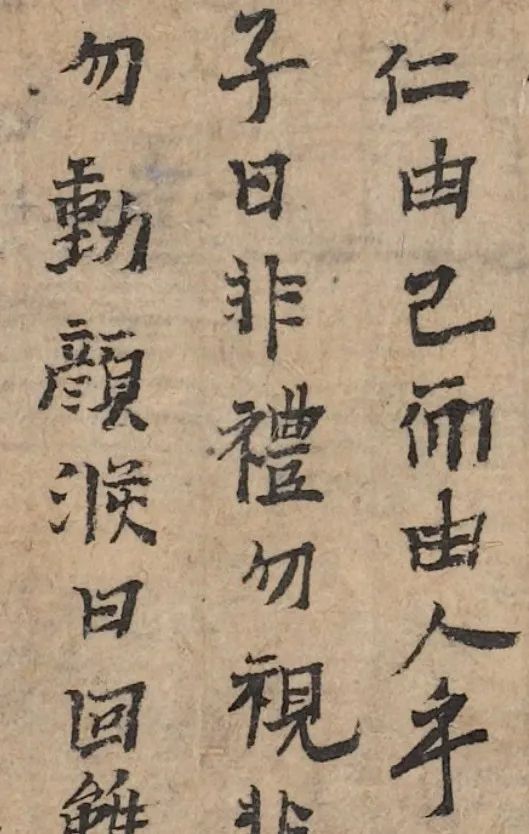 仁由己而由人乎
子曰非禮勿視非
勿動顔渕曰回雖